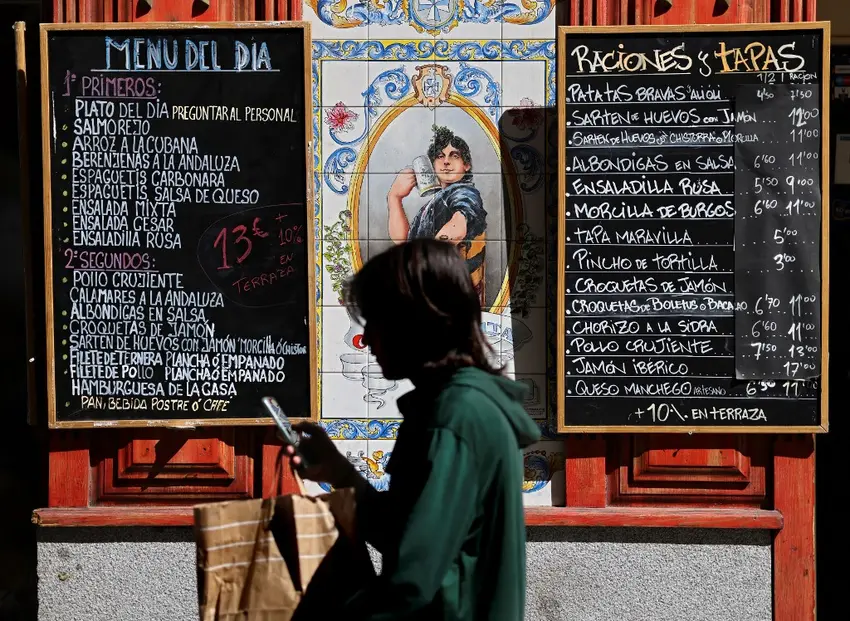 MENU DEL DIA
1º PRIMEROS:
PLATO DEL DIA PREGUNTAR AL PERSONAL
SALMOREJO
ARROZ A LA CUBANA
BERENJENAS A LA ANDALUZA
ESPAGUETIS CARBONARA
ESPAGUETIS SALSA DE QUESO
ENSALADA MIXTA
ENSALADA CESAR
ENSALADILLA RUSA
13€ + 10% EN TERRAZA
2º SEGUNDOS:
POLLO CRUJIENTE
CALAMARES A LA ANDALUZA
ALBONDIGAS EN SALSA
CROQUETAS DE JAMÓN
SARTEN DE HUEVOS CON JAMÓN MORCILLA Ó CHISTOR
FILETE DE TERNERA PLANCHA Ó EMPANADO
FILETE DE POLLO PLANCHA Ó EMPANADO
HAMBURGUESA DE LA CASA
PAN, BEBIDA POSTRE Ó CAFE
RACIONES y TAPAS
1/2 1 RACION
PATATAS BRAVAS Ó ALIOLI 4'50 7'50
SARTEN DE HUEVOS CON JAMÓN 12'00
SARTEN DE HUEVOS CON CHISTORRA O MORCILLA 11'00
ALBONDIGAS EN SALSA 6'60 11'00
ENSALADILLA RUSA 5'50 9'00
MORCILLA DE BURGOS 6'60 11'00
TAPA MARAVILLA 5'00
PINCHO DE TORTILLA 3'00
CROQUETAS DE JAMÓN
CROQUETAS DE BOLETUS O BACALAO 6'70 11'00
CHORIZO A LA SIDRA 6'60 11'00
POLLO CRUJIENTE 7'50 13'00
JAMÓN IBÉRICO 17'00
QUESO MANCHEGO ARTESANO 6'50 11
+10% EN TERRAZA